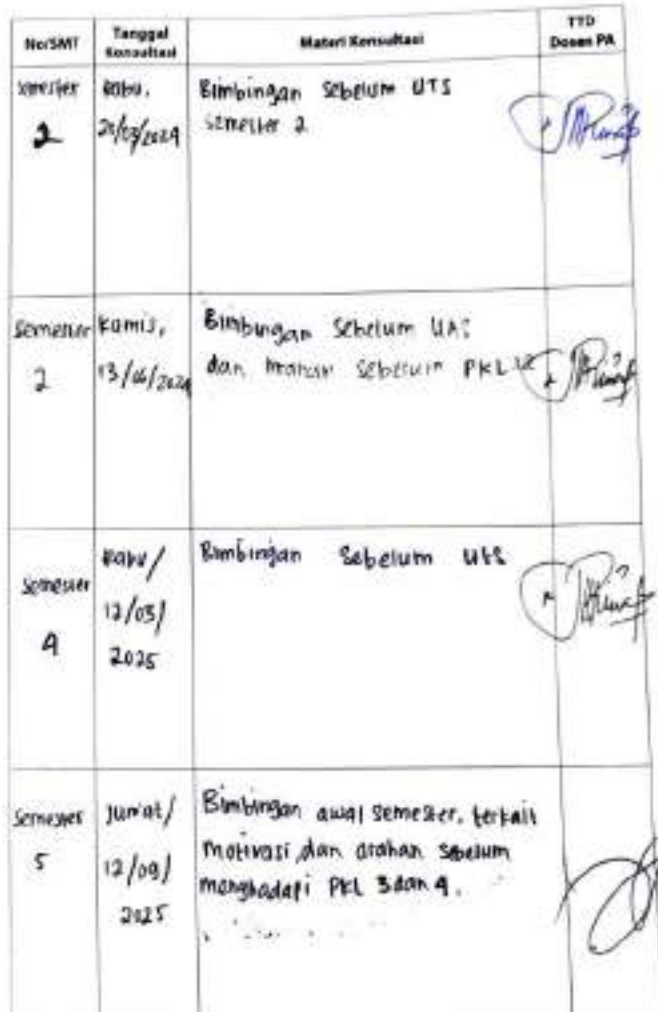 No/SMT
Tanggal
Konsultasi
Materi Konsultasi
TTD
Dosen PA
Semester
2
Rabu,
20/03/2024
Bimbingan Sebelum UTS
Semester 2
Semester
2
Kamis,
13/06/2024
Bimbingan Sebelum UAS
dan arahan sebelum PKL
Semester
4
Rabu/
12/03/
2025
Bimbingan Sebelum UTS
Semester
5
Jum'at/
12/09/
2025
Bimbingan awal semester, terkait
motivasi, dan arahan sebelum
menghadapi PKL 3 dan 4.